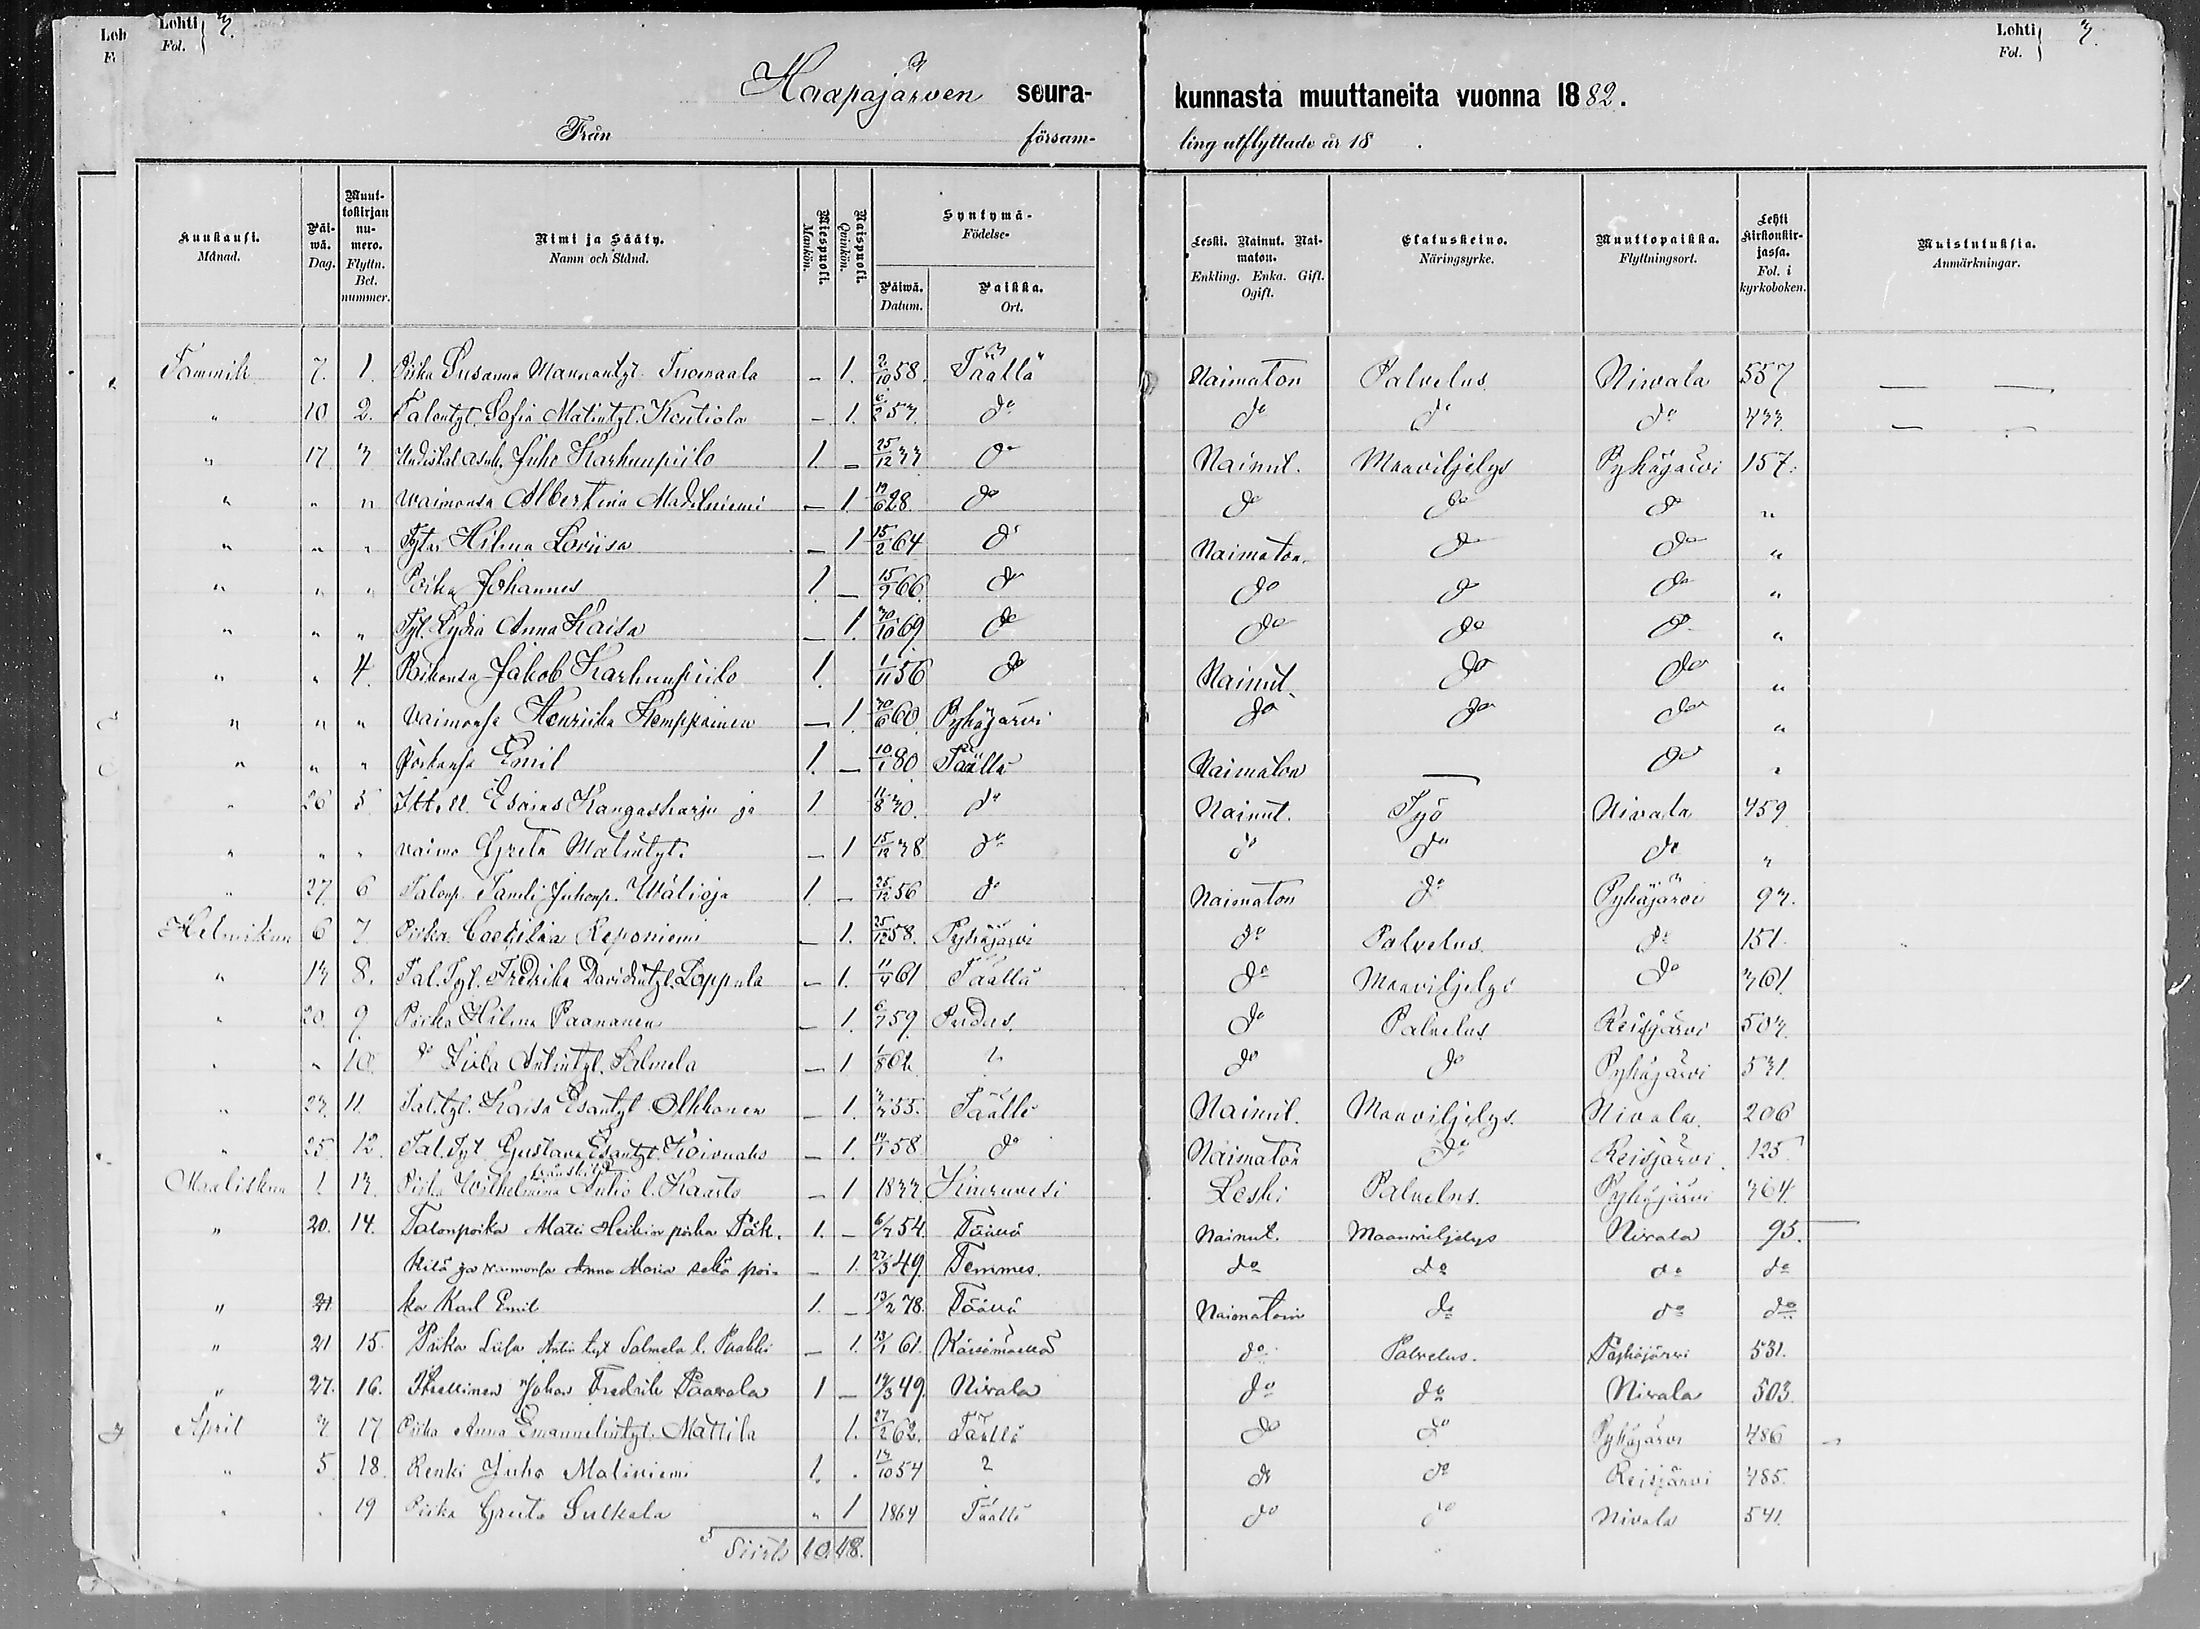 Lehti 3.
Fol.
Lehti 3.
Fol.
Haapajärven seura-
kunnasta muuttaneita vuonna 1882.
Från försam-
ling utflyttade år 18 .
Kuukausi. Månad.
Päi-wä. Dag.
Muut-tokirjan nu-mero. Flyttn. Bet. nummer.
Nimi ja Sääty. Namn och Stånd.
Miespuoli. Mankön.
Naispuoli. Qvinkön.
Syntymä- Födelse-
Päiwä. Datum.
Paikka. Ort.
Leski. Nainut. Nai-maton. Enkling. Enka. Gift. Ogift.
Elatuskeino. Näringsyrke.
Muuttopaikka. Flyttningsort.
Lehti Kirkonkir-jassa. Fol. i kyrkoboken.
Muistutuksia. Anmärkningar.
Tammik. 7. 1. Piika Susanna Mannantyt. Tuomaala – 1. 2/10 58. Täällä Naimaton Palvelus Niwala 557
" 10 2. Talontyt. Sofia Matintyt. Kentiola – 1. 6/2 53. do do do do 433
" 17 3 Uudistal. asuk. Juho Karhunpiilo 1. – 25/12 33 do Nainut. Maaviljelys Pyhäjärvi 157.
" " " waimonsa Albertina Madetniemi – 1. 19/6 28. do do do do "
" " " Tytär Hilma Loviisa – 1 15/2 64 do Naimaton. do do "
" " " Poika Johannes 1. – 15/9 66. do do do do "
" " " Tyt. Lydia Anna Kaisa – 1. 30/10 69 do do do do "
" " 4. Poikansa Jakob Karhunpiilo 1. 1/11 56 do Nainut. do do "
" " " Vaimonsa Henriika Kemppainen – 1. 30/6 60. Pyhäjärvi do do do "
" " " Poikansa Emil 1. – 10/1 80 Täällä Naimaton — do "
" 26 5 Itsell. Esaias Kangasharju ja 1 11/8 30. do Nainut. Työ Nivala 459
" " " vaimo Greta Matintyt. – 1 15/12 38 do do do do "
" 27. 6 Talonp. Taneli Juhonp. Wälioja 1. – 25/12 56 do Naimaton do Pyhäjärvi 93.
Helmikuu 6 7 Piika Caecilia Reponiemi – 1. 25/12 58. Pyhäjärvi do Palvelus. do 151
" 13 8. Tal. Tyt. Fredrika Davidintyt. Loppula – 1. 11/4 61 Täällä do Maaviljelys do 361.
" 20. 9. Piika Hilma Paananen – 1. 6/7 59. Pudas. do Palvelus Reisjärvi 503.
" " 10. do Liisa Antintyt. Salmela – 1 1/8 61. ? do do Pyhäjärvi 531.
" 23. 11. Tal.tyt. Kaisa Esantyt. Olkkonen – 1. 3/3 55. Täällä Nainut. Maaviljelys. Nivala. 206
" 25 12. Tal. Tyt. Gustava Esantyt. Koivuaho – 1. 14/1 58 do Naimaton do Reisjärvi. 125
Maaliskuu 1 13. Piika Wilhelmina Julio l. Kaarto – 1 1833 Kiuruvesi Leski Palvelus. Pyhäjärvi 364.
" 20. 14. Talonpoika Matti Heikin poika Päk- 1. – 6/7 54. Täällä Nainut. Maanviljelys Nivala 95.
kilä ja vaimonsa Anna Maria sekä poi- – 1. 27/3 49. Temmes. do do do do
" 21 ka Karl Emil 1. – 13/2 78. Täällä Naimatoin do do do
" 21 15. Piika Liisa Antin tyt Salmela l. Paakki – 1. 13/1 61. Kärsämäellä do Palvelus. Pyhäjärvi 531.
" 27. 16. Itsellinen Johan Fredrik Paavola 1 – 14/3 49. Nivala do do Nivala 503.
April 3 17 Piika Anna Emanuelintyt. Mattila 1. 27/2 62. Täällä do do Pyhäjärvi 486
" 5. 18. Renki Juho Maliniemi 1. . 13/10 54 ? do do Reisjärvi 485.
" " 19 Piika Greeta Sulkala " 1 1864 Täällä do do Nivala 541.
Siirto 10. 18.